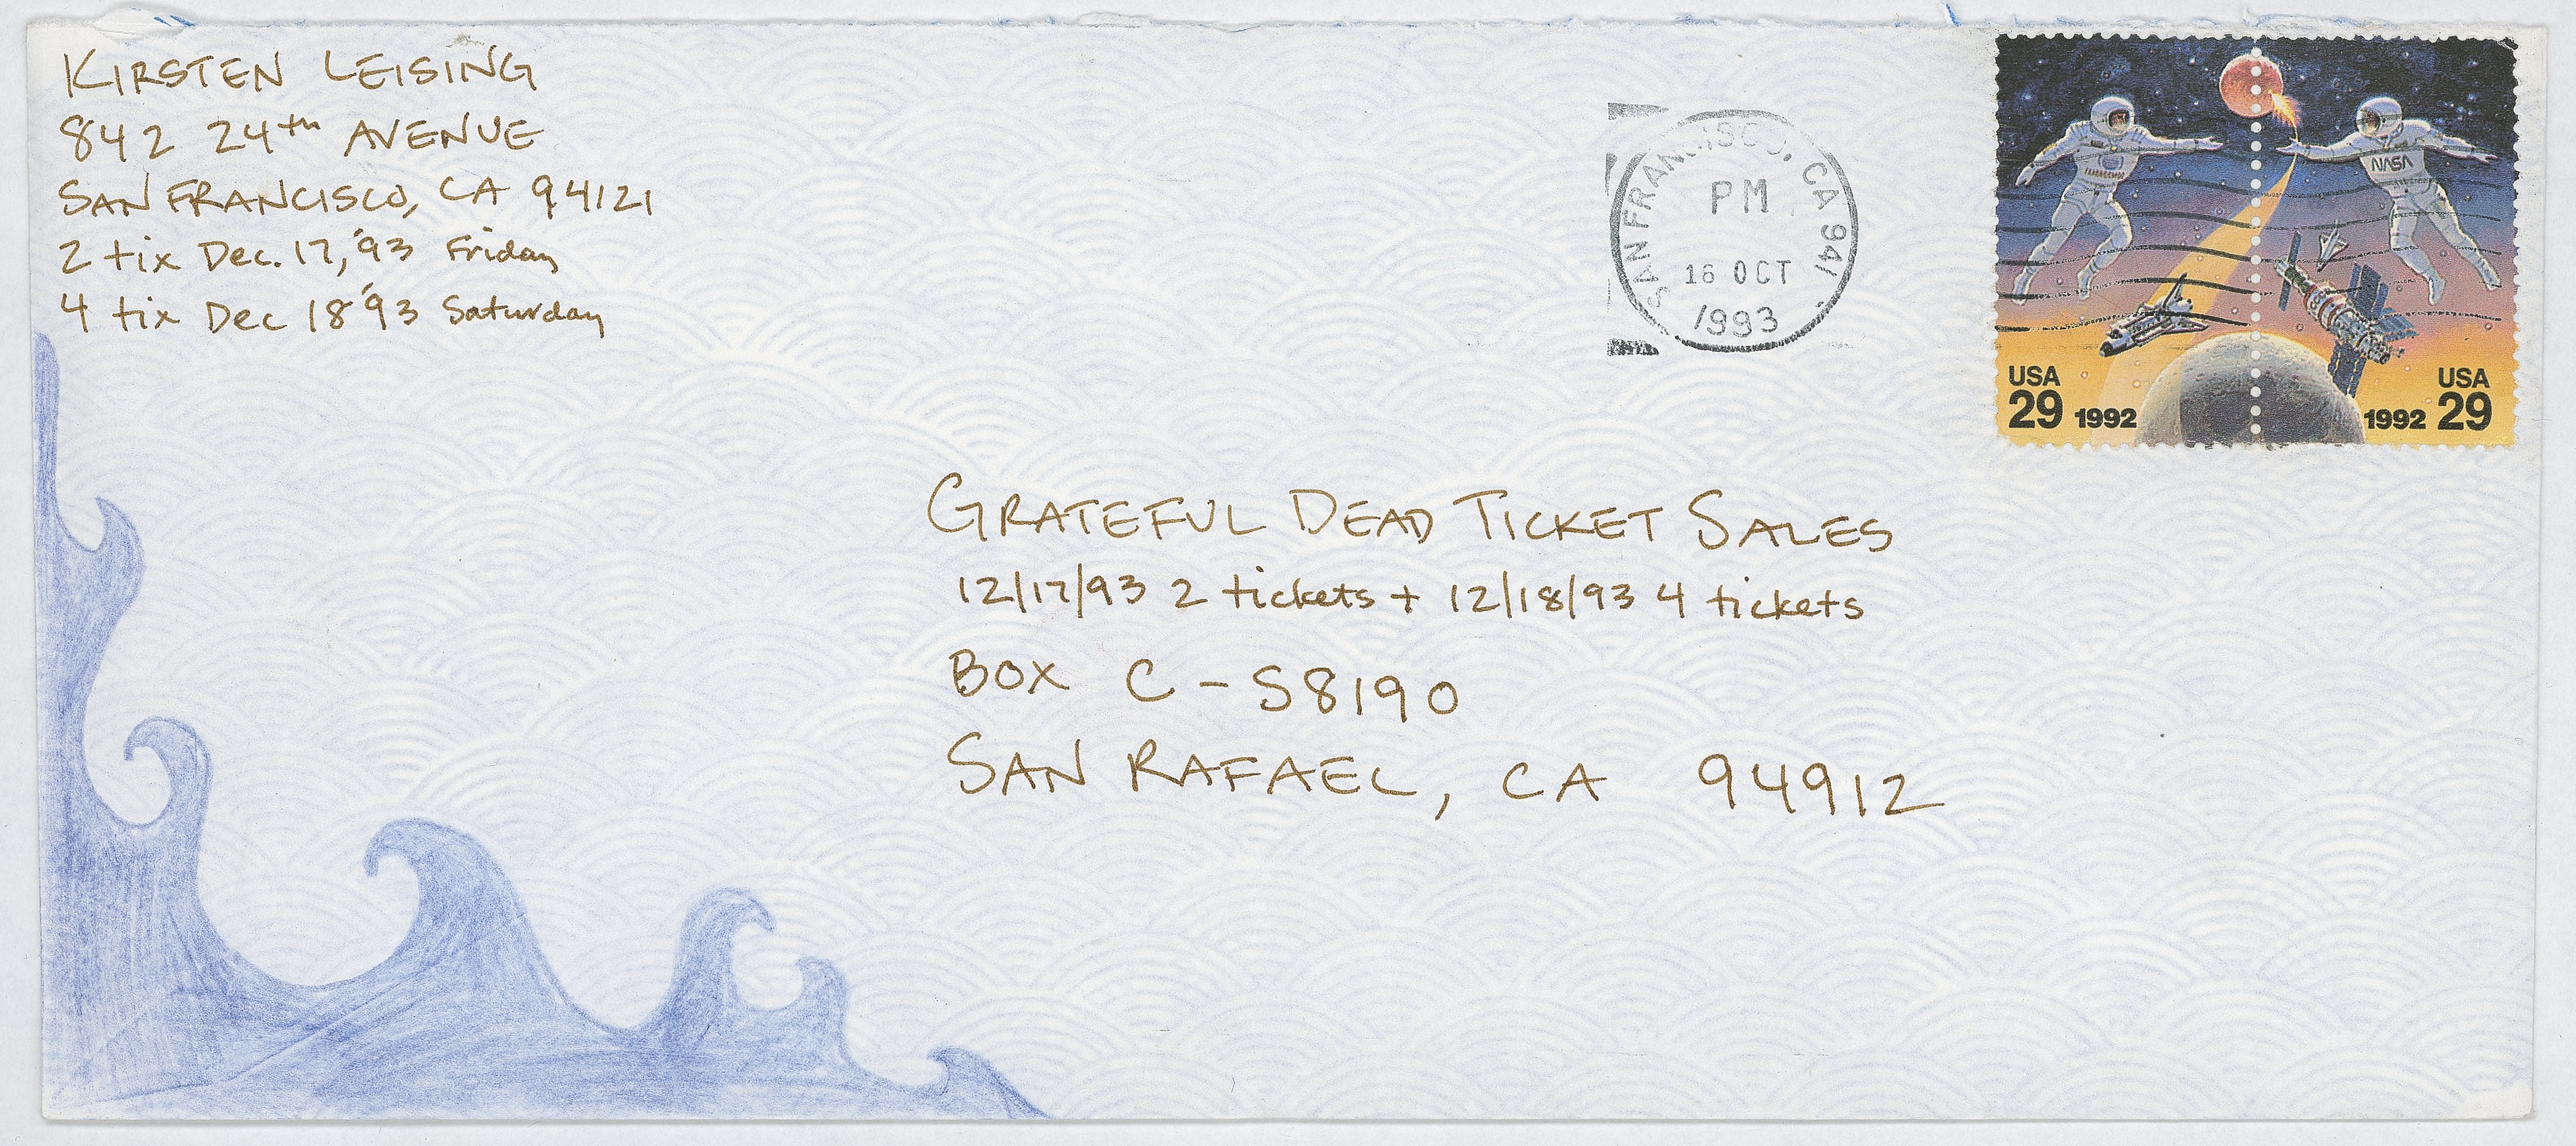 KIRSTEN LEISING
842 24th AVENUE
SAN FRANCISCO, CA 94121
2 tix Dec. 17, '93 Friday
4 tix Dec 18 '93 Saturday
SAN FRANCISCO, CA 941
PM
16 OCT
1993
NASA
USA
29 1992
USA
1992 29
GRATEFUL DEAD TICKET SALES
12/17/93 2 tickets + 12/18/93 4 tickets
BOX C-S8190
SAN RAFAEL, CA 94912